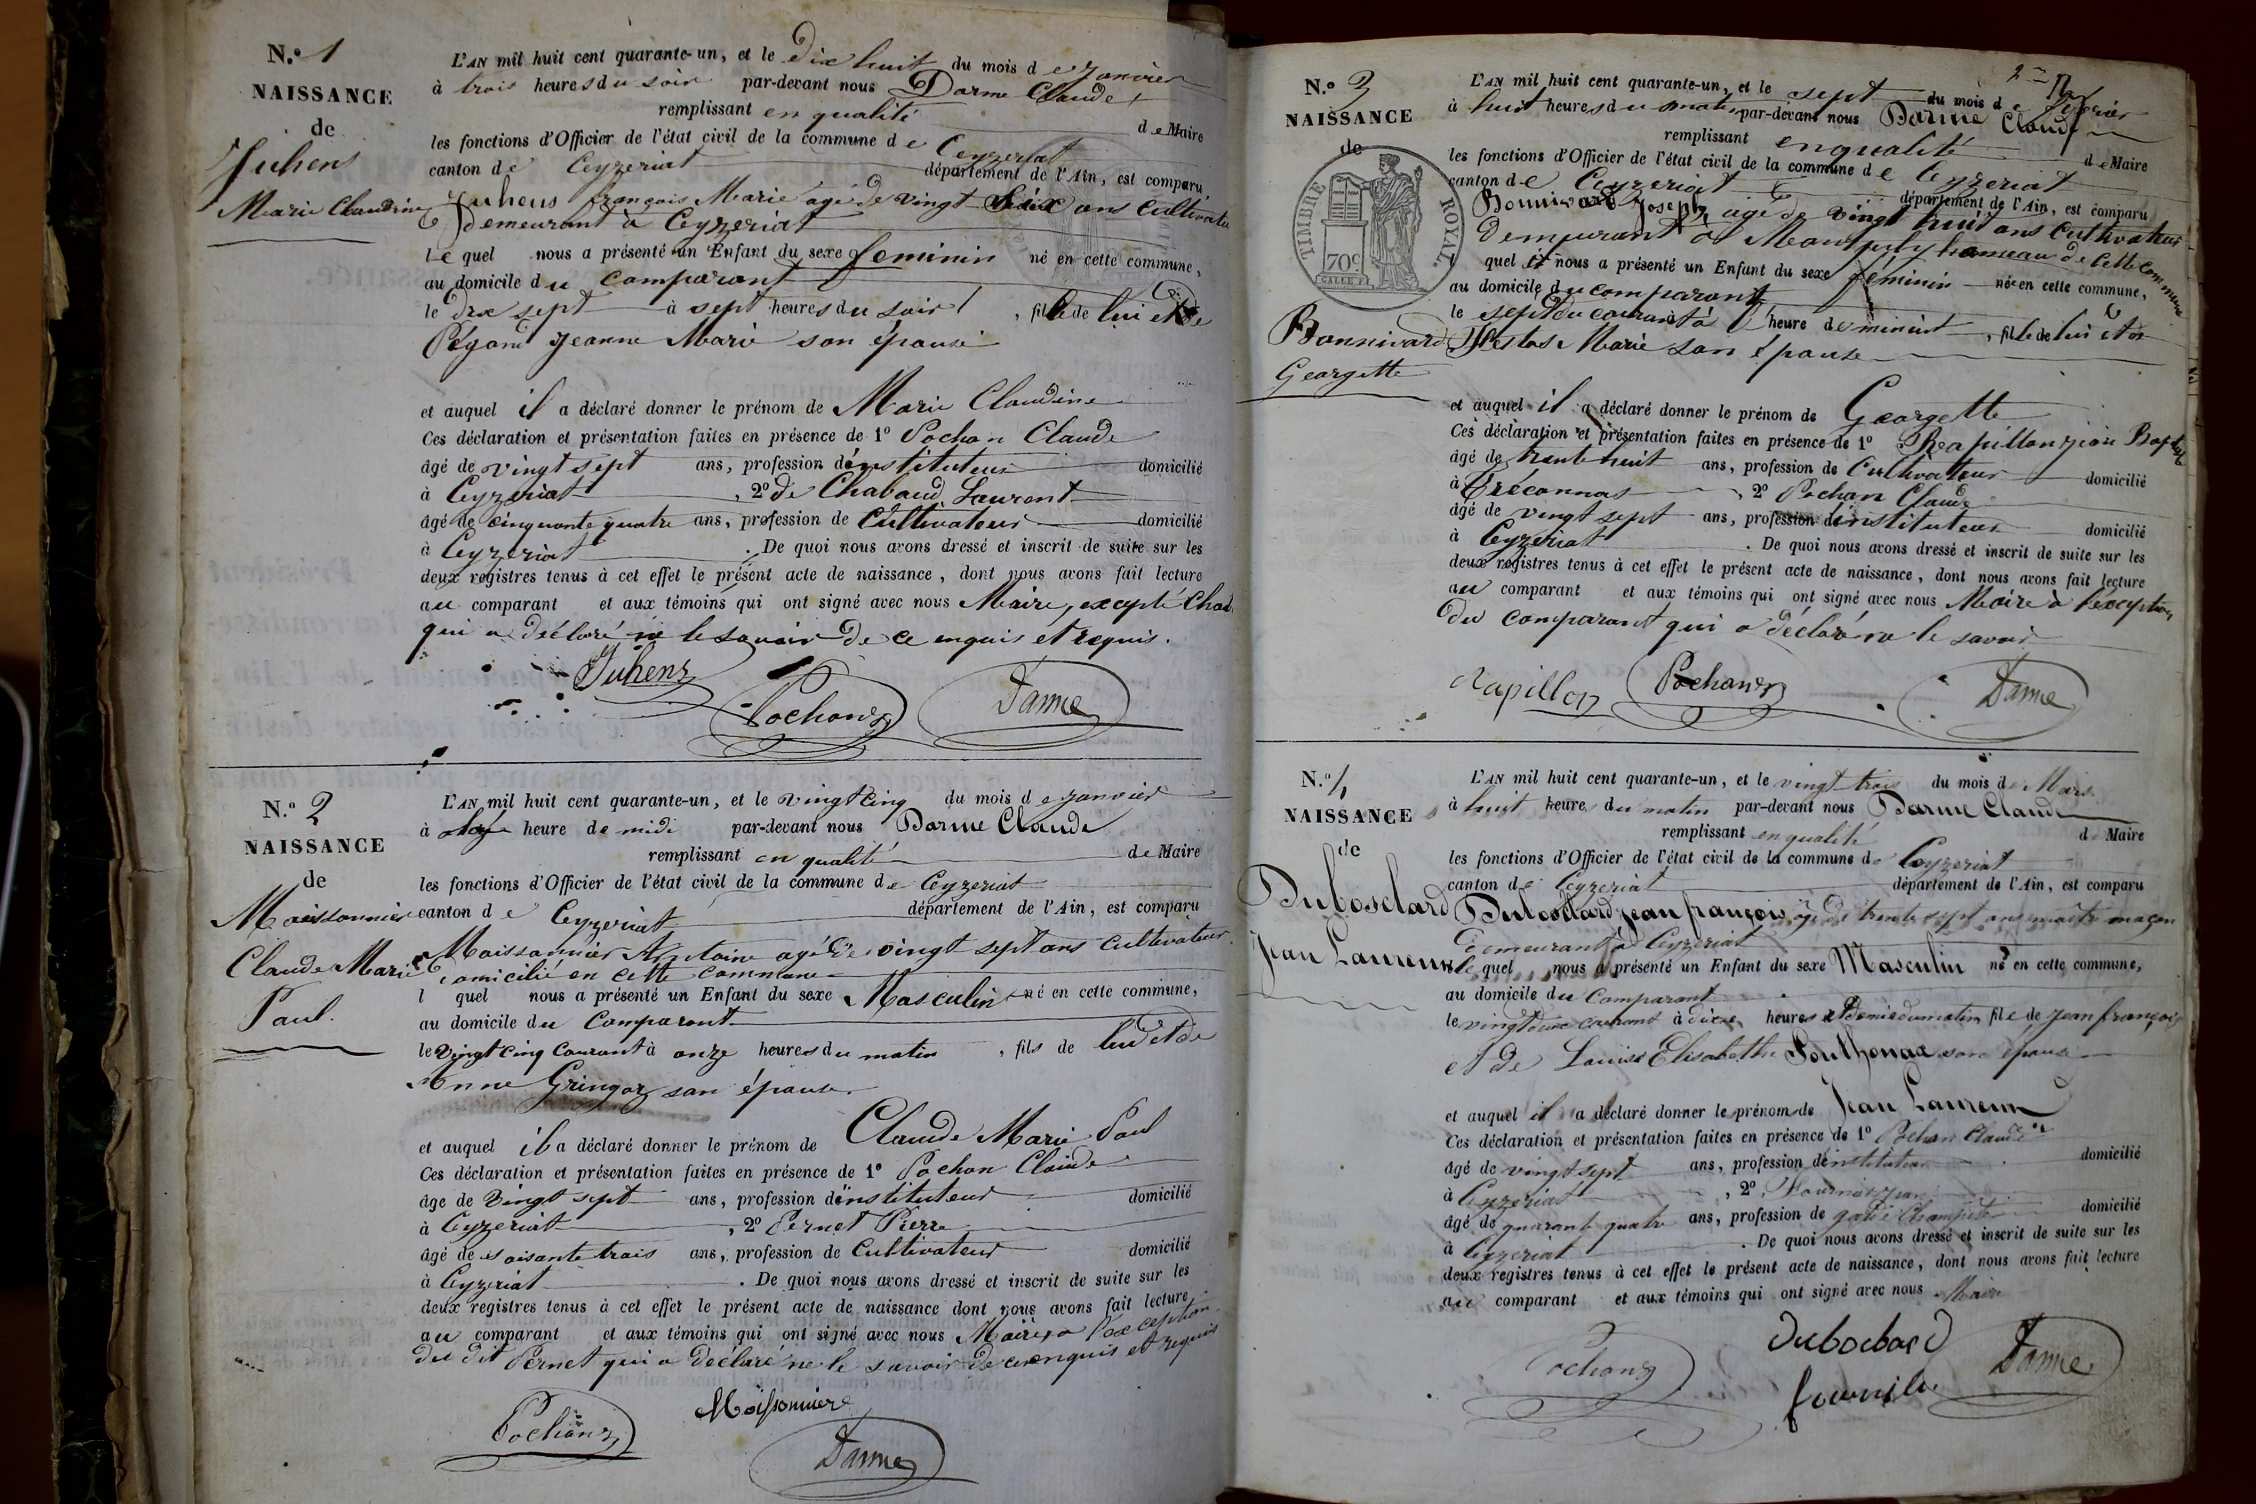 N.º 1
NAISSANCE
de
Juhens
Marie Claudine
L'AN mil huit cent quarante-un, et le dix huit du mois de Janvier
à trois heures du soir par-devant nous Darme Claude
remplissant en qualité de Maire
les fonctions d'Officier de l'état civil de la commune de Ceyzeriat
canton de Ceyzeriat département de l'Ain, est comparu
Juhens françois Marie agé de vingt ans cultivateur
Demeurant à Ceyzeriat
Le quel nous a présenté un Enfant du sexe feminin né en cette commune,
au domicile du comparant
le dix sept à sept heures du soir, fille de lui et de
Jeanne Marie son épouse
et auquel il a déclaré donner le prénom de Marie Claudine
Ces déclaration et présentation faites en présence de 1º Pochon Claude
âgé de vingt sept ans, profession d'instituteur domicilié
à Ceyzeriat, 2º de Chabaud Laurent
âgé de cinquante quatre ans, profession de Cultivateur domicilié
à Ceyzeriat. De quoi nous avons dressé et inscrit de suite sur les
deux registres tenus à cet effet le présent acte de naissance, dont nous avons fait lecture
au comparant et aux témoins qui ont signé avec nous Maire, excepté Chab
qui a déclaré ne le savoir de ce enquis et requis.
Juhens
Pochon
Darme
N.º 2
NAISSANCE
de
Moissonnier
Claude Marie
Paul.
L'AN mil huit cent quarante-un, et le vingt cinq du mois de Janvier
à heure de midi par-devant nous Darme Claude
remplissant en qualité de Maire
les fonctions d'Officier de l'état civil de la commune de Ceyzeriat
canton de Ceyzeriat département de l'Ain, est comparu
Moissonnier Antoine agé de vingt sept ans cultivateur
Domicilié en cette commune
l quel nous a présenté un Enfant du sexe Masculin né en cette commune,
au domicile du Comparant
le vingt cinq Courant à onze heures du matin, fils de lui et de
Anne Gringoz son épouse.
et auquel il a déclaré donner le prénom de Claude Marie Paul
Ces déclaration et présentation faites en présence de 1º Pochon Claude
âge de Vingt sept ans, profession d'instituteur domicilié
à Ceyzeriat, 2º Pernet Pierre
âgé de soisante trois ans, profession de Cultivateur domicilié
à Ceyzeriat. De quoi nous avons dressé et inscrit de suite sur les
deux registres tenus à cet effet le présent acte de naissance dont nous avons fait lecture
au comparant et aux témoins qui ont signé avec nous Maire, a l'exception
du dit Pernet qui a déclaré ne le savoir de ce enquis et requis
Pochon
Moissonnier
Darme
N.º 3
NAISSANCE
de
TIMBRE ROYAL.
70c
Bonnivard
Georgette
L'AN mil huit cent quarante-un, et le sept du mois de fevrier
à huit heures du matin par-devant nous Darme Claude
remplissant en qualité de Maire
les fonctions d'Officier de l'état civil de la commune de Ceyzeriat
canton de Ceyzeriat département de l'Ain, est comparu
Bonnivard Joseph agé de vingt huit ans cultivateur
demeurant à hameau de cette commune
quel nous a présenté un Enfant du sexe féminin née en cette commune,
au domicile du comparant
le sept du courant à heure de minuit, fille de lui et de
Marie son épouse
et auquel il a déclaré donner le prénom de Georgette
Ces déclaration et présentation faites en présence de 1º Rapillon jean Baptiste
âgé de trente huit ans, profession de Cultivateur domicilié
à Treconnas, 2º Pochon Claude
âgé de vingt sept ans, profession d'instituteur domicilié
à Ceyzeriat. De quoi nous avons dressé et inscrit de suite sur les
deux registres tenus à cet effet le présent acte de naissance, dont nous avons fait lecture
au comparant et aux témoins qui ont signé avec nous Maire à l'exception
du comparant qui a déclaré ne le savoir
Rapillon
Pochon
Darme
N.º 4
NAISSANCE
de
Dubosclard
Jean Laurent
L'AN mil huit cent quarante-un, et le vingt trois du mois de Mars
à huit heures du matin par-devant nous Darme Claude
remplissant en qualité de Maire
les fonctions d'Officier de l'état civil de la commune de Ceyzeriat
canton de Ceyzeriat département de l'Ain, est comparu
Dubosclard jean françois agé de trente sept ans maître maçon
demeurant à Ceyzeriat
le quel nous a présenté un Enfant du sexe Masculin né en cette commune,
au domicile du Comparant
le vingt deux courant à heures et demie du matin, fils de jean françois
et de Louise Elisabeth Pouthonax son épouse
et auquel il a déclaré donner le prénom de Jean Laurent
Ces déclaration et présentation faites en présence de 1º Pochon Claude
âgé de vingt sept ans, profession d'instituteur domicilié
à Ceyzeriat, 2º
âgé de quarante quatre ans, profession de garde champêtre domicilié
à Ceyzeriat. De quoi nous avons dressé et inscrit de suite sur les
deux registres tenus à cet effet le présent acte de naissance, dont nous avons fait lecture
au comparant et aux témoins qui ont signé avec nous Maire
Pochon
Dubosclard
Darme